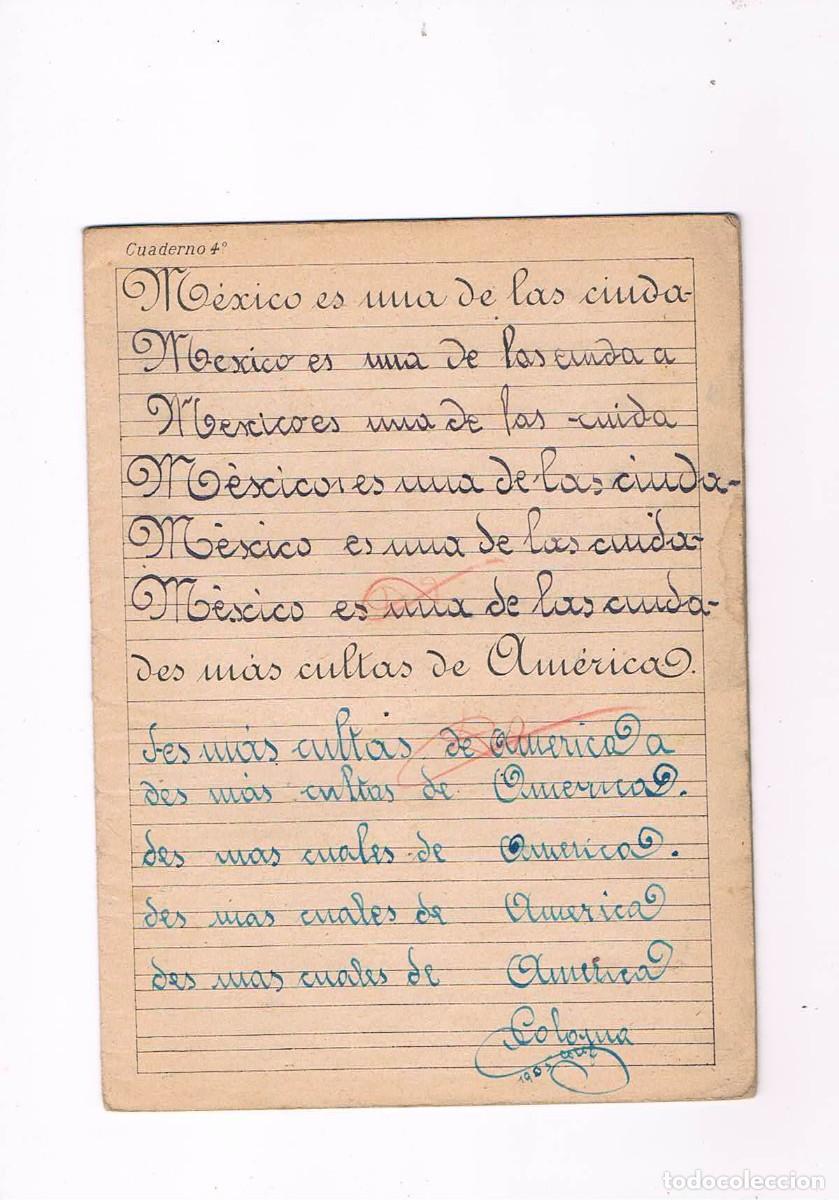 Cuaderno 4º
México es una de las ciuda-
Mexico es una de las ciuda a
Mexico es una de las cuida
Mèxico es una de las ciuda-
Mèxico es una de las cuida-
Mèxico es una de las ciuda-
des más cultas de América.
des más cultas de America a
des más cultas de America.
des mas cuales de America.
des mas cuales de America
des mas cuales de America
1905
todocoleccion